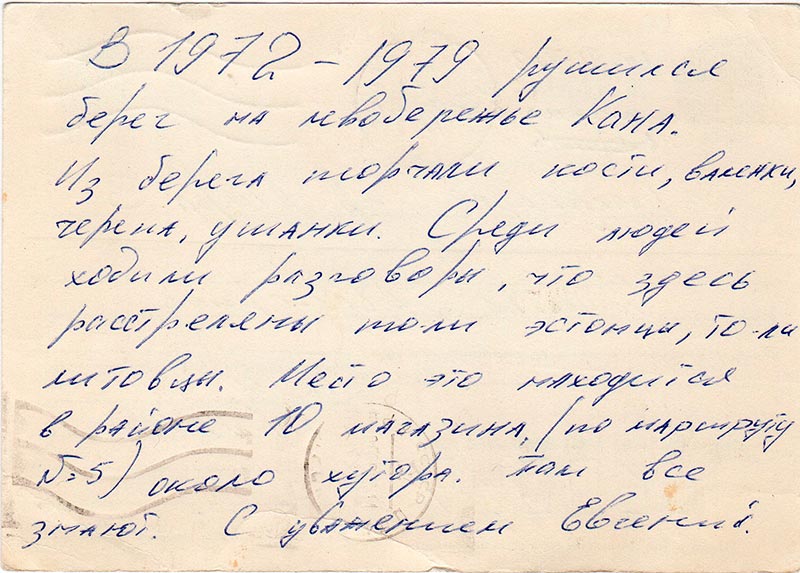 В 1972 – 1979 рушился
берег на левобережье Кана.
Из берега торчали кости, валенки,
черепа, ушанки. Среди людей
ходили разговоры, что здесь
расстреляны толи эстонцы, то-ли
литовцы. Место это находится
в районе 10 магазина, (по маршруту
№5) около хутора. Там все
знают. С уважением Евгений.